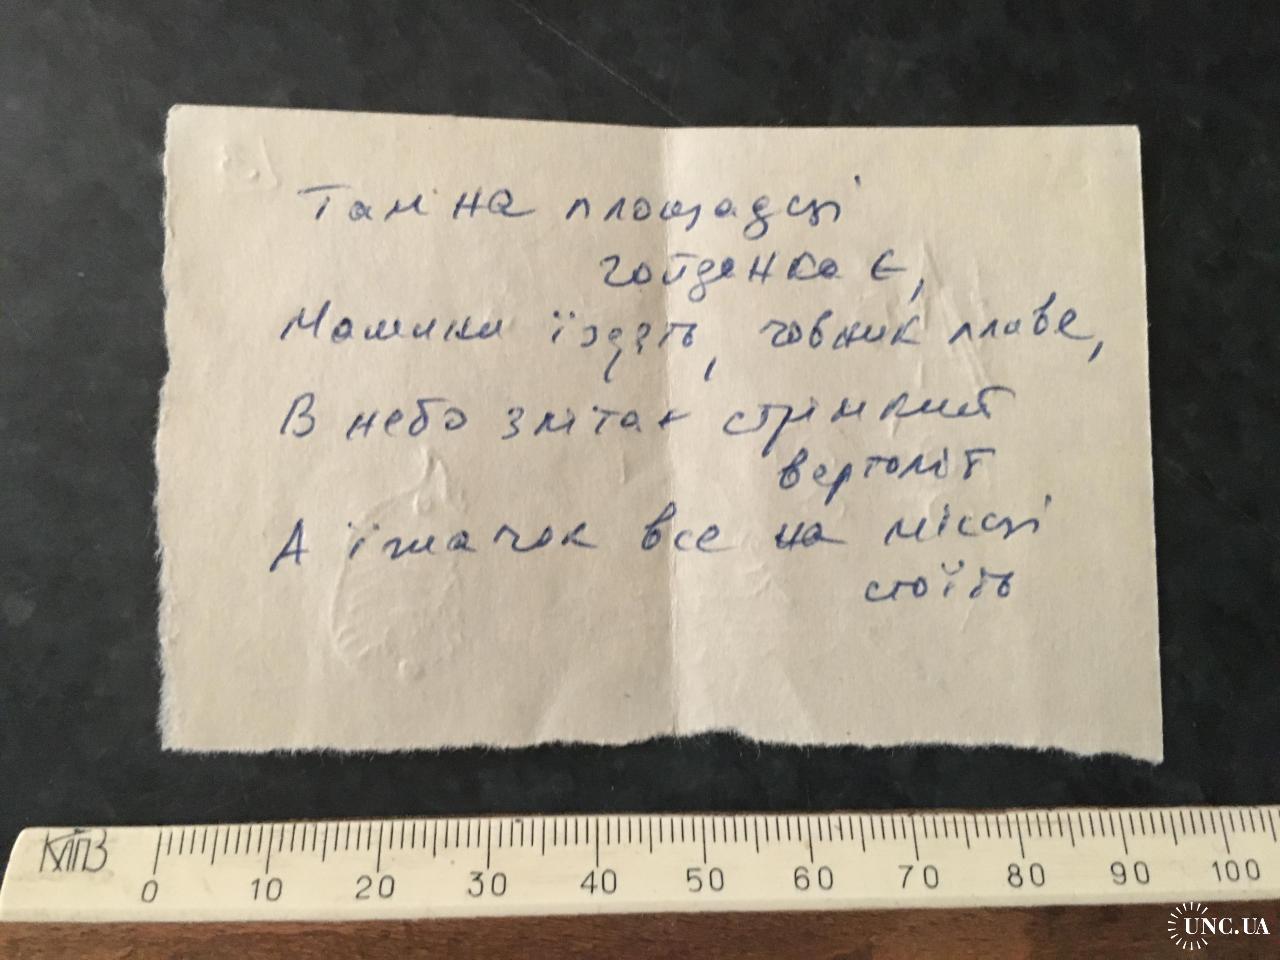 Там на площадці
гойданка є,
Машини їздять, човник пливе,
В небо злітає стрімкий
вертоліт
А їжачок все на місці
стоїть
КПЗ
0 10 20 30 40 50 60 70 80 90 100
UNC.UA